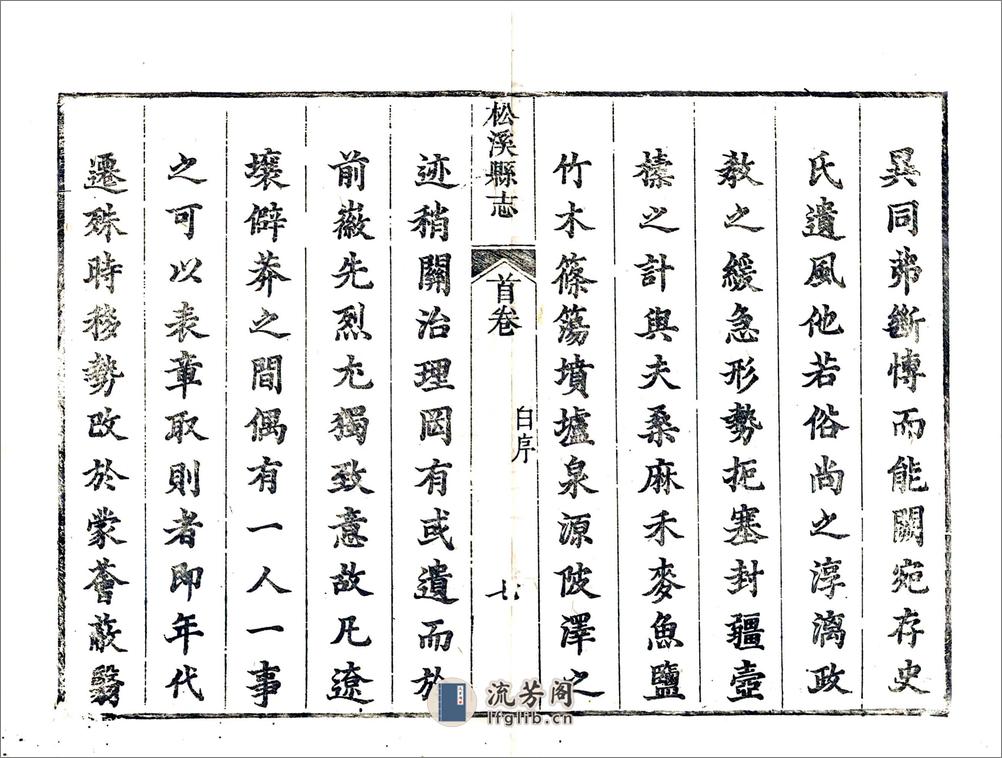 異同弗斷慱而能闕宛存史
氏遺風他若俗尚之淳漓政
教之緩急形勢扼塞封疆壺
榛之計與夫桑麻禾麥魚鹽
竹木篠簜墳壚泉源陂澤之
松溪縣志
首卷
自序
七
迹稍關治理罔有或遺而於
前徽先烈尤獨致意故凡遼
壤僻莽之間偶有一人一事
之可以表章取則者即年代
遷殊時移勢改於蒙薈蔽翳
流芳阁
lfglib.cn